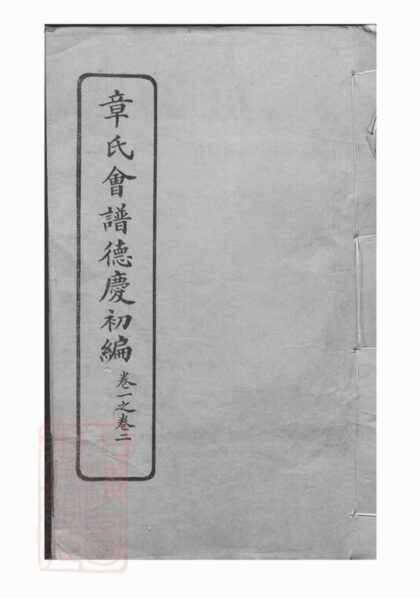 章氏會譜德慶初編卷一之卷二